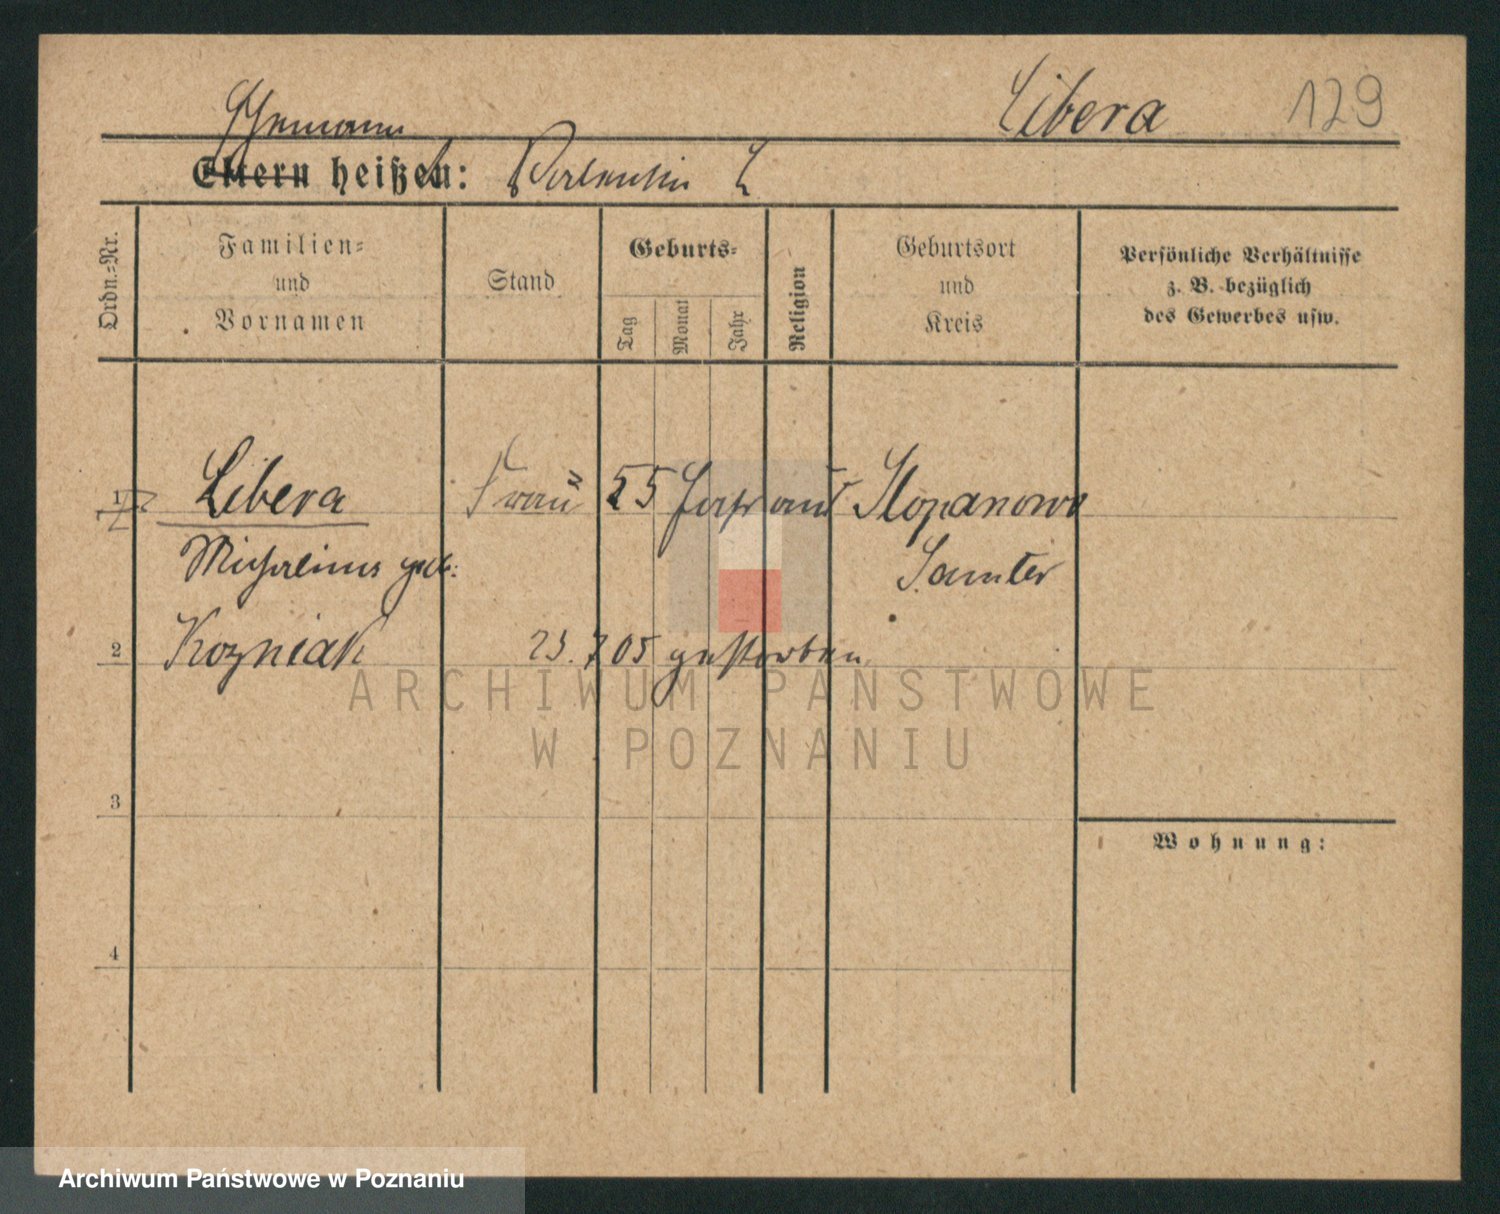 Libera 129
Ehemann
Eltern heißen: Valentin L
Ordn.-Nr.
Familien-
und
Vornamen
Stand
Geburts-
Tag
Monat
Jahr
Religion
Geburtsort
und
Kreis
Persönliche Verhältnisse
z. B. bezüglich
des Gewerbes usw.
1 Libera Frau 55 Jahr Slopanowo
geb: Samter
2 Kozniak 23.7 05 gestorben
ARCHIWUM PAŃSTWOWE
W POZNANIU
3
Wohnung:
4
Archiwum Państwowe w Poznaniu